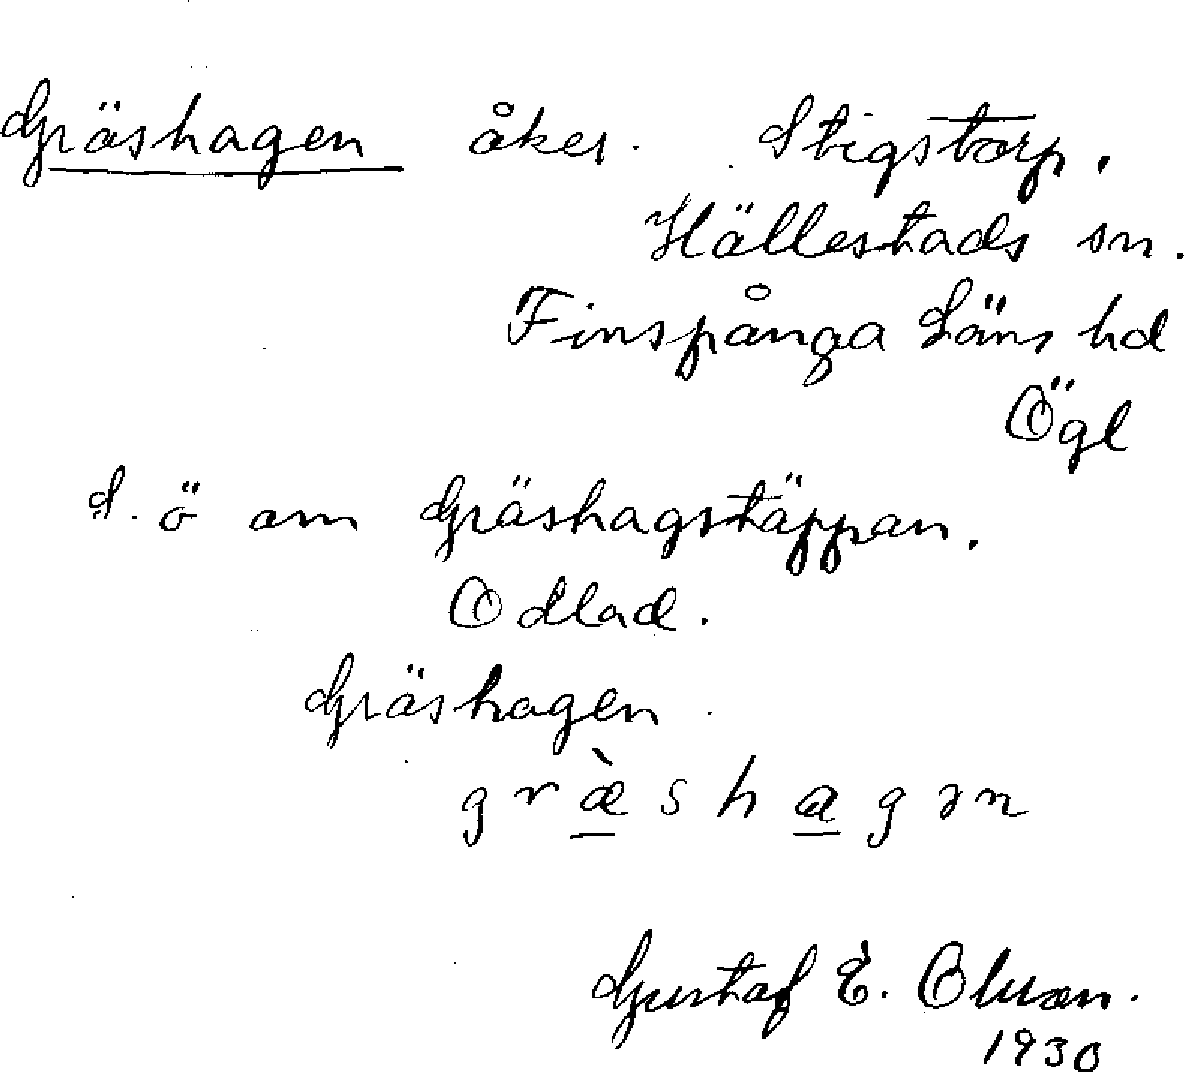 Gräshagen åker. Stigstorp.
Hällestads sn.
Finspånga Läns hd
Ögl
S. ö om Gräshagstäppan.
Odlad.
Gräshagen
græ̀shagən
Gustaf E.
1930